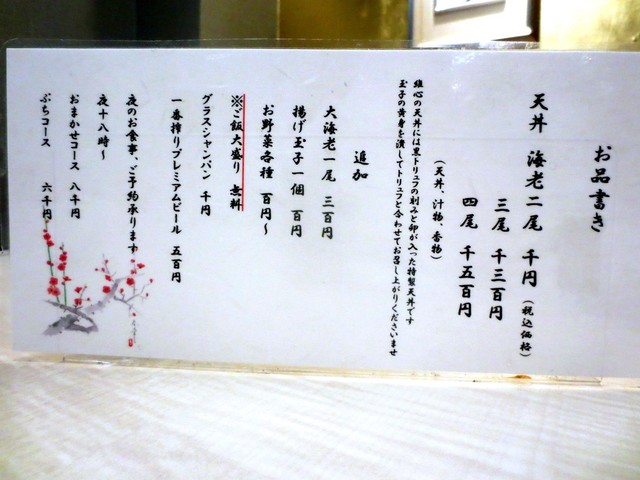 お品書き
天丼 海老二尾 千円(税込価格)
三尾 千三百円
四尾 千五百円
(天丼、汁物、香物)
雄心の天丼には黒トリュフの刻みと卵が入った特製天丼です
玉子の黄身を潰してトリュフと合わせてお召し上がりくださいませ
追加
大海老一尾 三百円
揚げ玉子一個 百円
お野菜各種 百円~
※ご飯大盛り 無料
グラスシャンパン 千円
一番搾りプレミアムビール 五百円
夜のお食事、ご予約承ります
夜十八時~
おまかせコース 八千円
ぷちコース 六千円